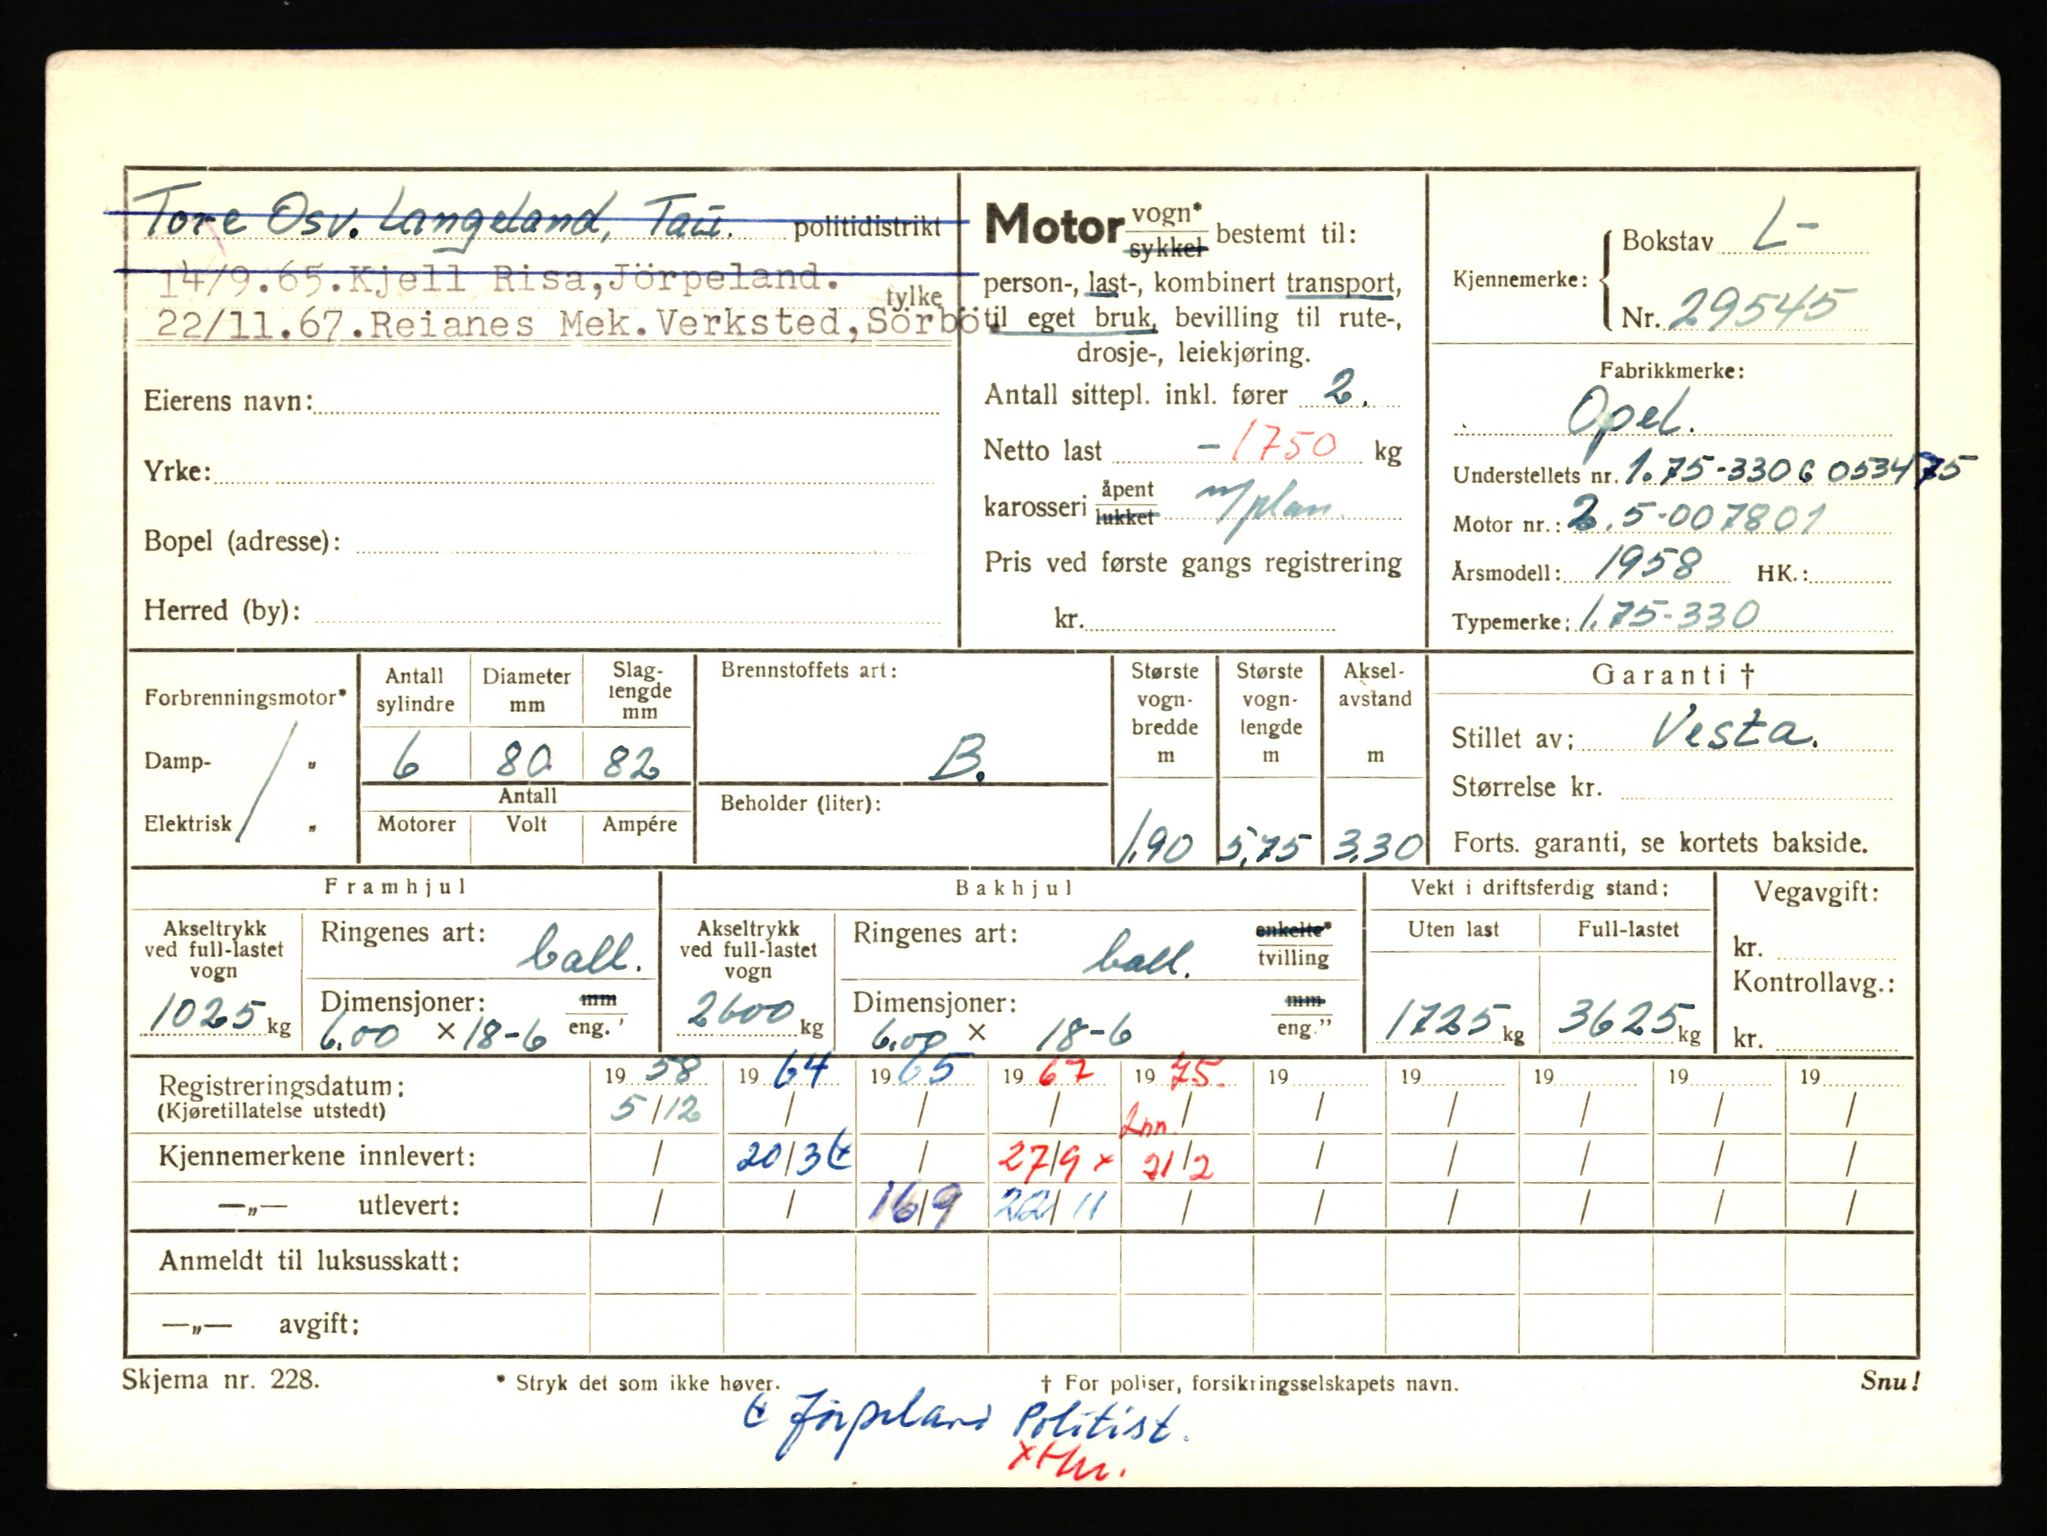 Tore Osv. Langeland, Tau. politidistrikt
14/9.65.Kjell Risa,Jörpeland.
fylke
22/11.67.Reianes Mek.Verksted,Sörbö.
Eierens navn:
Yrke:
Bopel (adresse):
Herred (by):
Motor vogn* sykkel bestemt til:
person-, last-, kombinert transport,
til eget bruk, bevilling til rute-,
drosje-, leiekjøring.
Antall sittepl. inkl. fører 2.
Netto last - 1750 kg
karosseri åpent lukket m/plan
Pris ved første gangs registrering
kr.
Kjennemerke: Bokstav L-
Nr. 29545
Fabrikkmerke:
Opel.
Understellets nr. 1.75-330 G 053475
Motor nr.: 2.5-007801
Årsmodell: 1958 HK.:
Typemerke: 1.75-330
Forbrenningsmotor*
Damp- „
Elektrisk „
Antall sylindre 6
Diameter mm 80
Slag-lengde mm 82
Antall
Motorer Volt Ampére
Brennstoffets art:
B.
Beholder (liter):
Største vogn-bredde m 1,90
Største vogn-lengde m 5,75
Aksel-avstand m 3,30
Garanti †
Stillet av: Vesta.
Størrelse kr.
Forts. garanti, se kortets bakside.
Framhjul
Akseltrykk ved full-lastet vogn 1025 kg
Ringenes art: ball.
Dimensjoner: 6.00 × 18-6 mm eng."
Bakhjul
Akseltrykk ved full-lastet vogn 2600 kg
Ringenes art: ball. enkelte* tvilling
Dimensjoner: 6.00 × 18-6 mm eng."
Vekt i driftsferdig stand:
Uten last 1725 kg
Full-lastet 3625 kg
Vegavgift:
kr.
Kontrollavg.:
kr.
Registreringsdatum: 19 58 19 64 19 65 19 67 19 75. 19 19 19 19 19
(Kjøretillatelse utstedt) 5/12 / / / / / / / / /
Inn.
Kjennemerkene innlevert: / 20/3 / 27/9 x 21/2 / / / / /
—„— utlevert: / / 16/9 22/11 / / / / / /
Anmeldt til luksusskatt:
—„— avgift:
Skjema nr. 228. * Stryk det som ikke høver. † For poliser, forsikringsselskapets navn. Snu!
Jörpeland Politist.